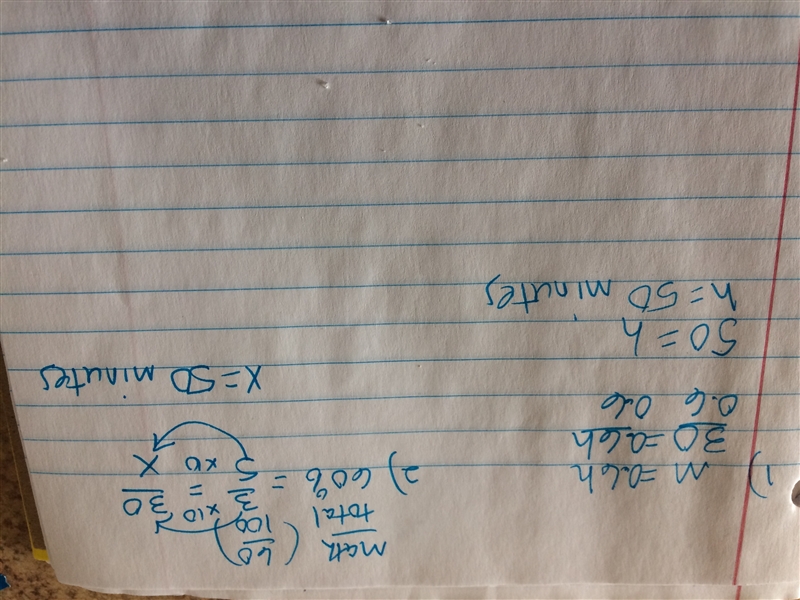 1) m = 0.6h
30 = 0.6h
0.6 0.6
50 = h
h = 50 minutes
math (60
total 100)
2) 60% = 3 x10 = 30
5 x10 x
x = 50 minutes